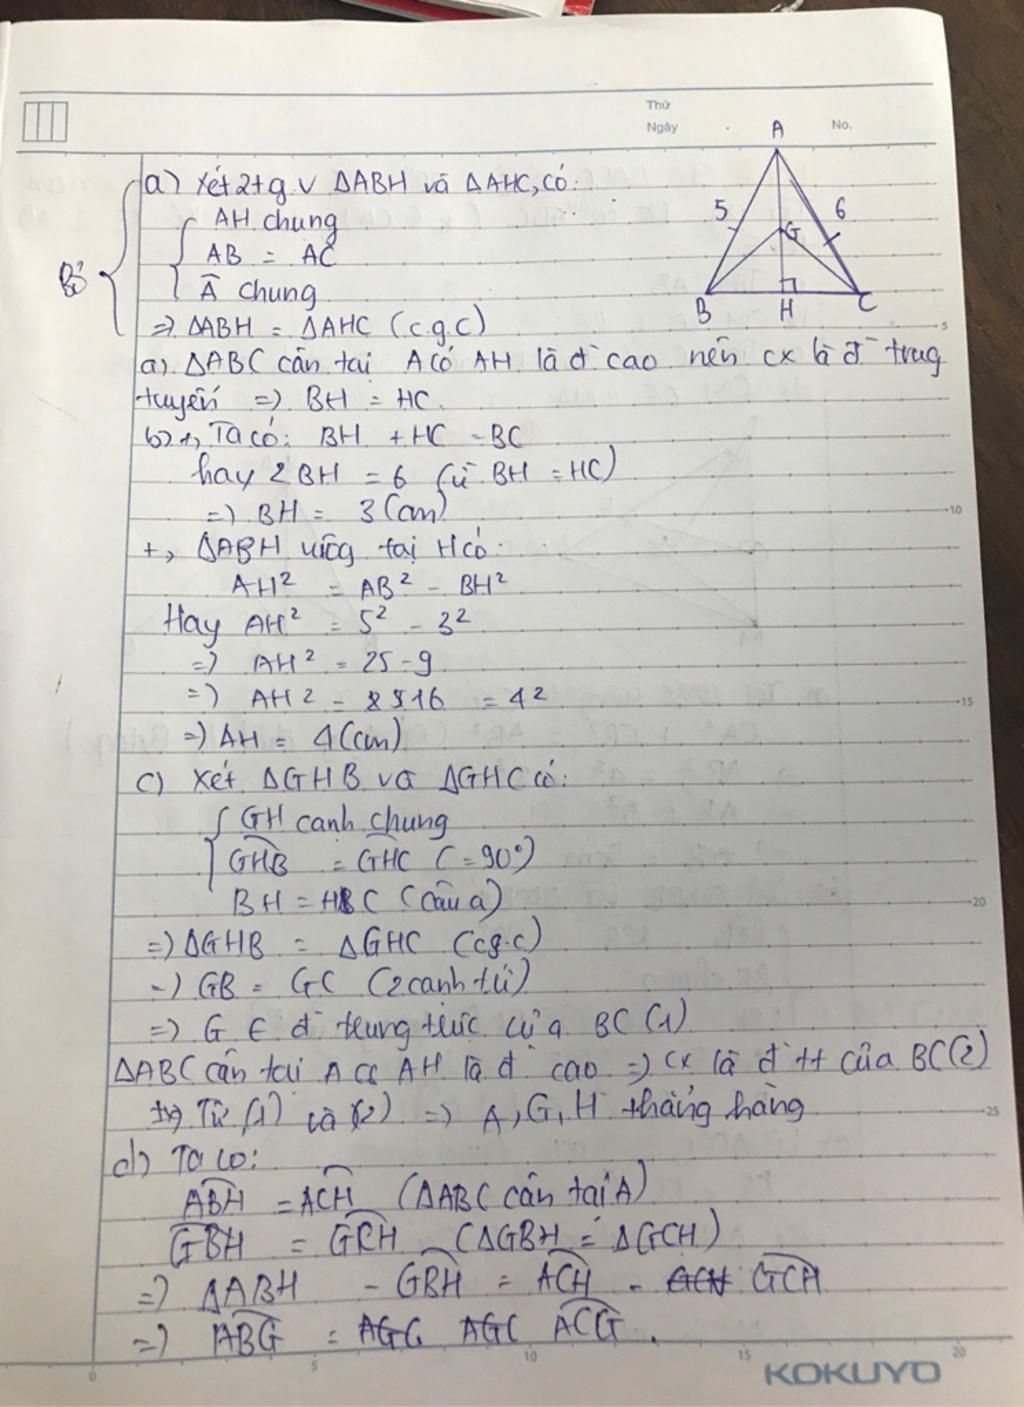 Thứ
Ngày
No.
A
5
6
G
B
H
C
Bỏ
a) Xét 2 t g v ΔABH và ΔAHC, có:
AH chung
AB = AC
Â chung
=> ΔABH = ΔAHC (c.g.c)
5
a) ΔABC cân tại A có AH là đ̀ cao nên cx là đ̀ trug
tuyến => BH = HC.
b) +, Ta có: BH + HC = BC
hay 2BH = 6 (vì BH = HC)
=> BH = 3 (cm)
10
+, ΔABH vuôg tại H có:
AH² = AB² - BH²
Hay AH² = 5² - 3²
=> AH² = 25 - 9
=> AH² = 16 = 4²
15
=> AH = 4 (cm)
c) Xét ΔGHB và ΔGHC có:
GH cạnh chung
GHB = GHC (= 90°)
BH = HC (câu a)
20
=> ΔGHB = ΔGHC (c.g.c)
=> GB = GC (2 cạnh tứ)
=> G ∈ đ̀ trung trực của BC (1)
ΔABC cân tại A có AH là đ̀ cao => cx là đ̀ tt của BC (2)
Từ (1) và (2) => A, G, H thẳng hàng
25
d) Ta có:
ABH = ACH (ΔABC cân tại A)
GBH = GCH (ΔGBH = ΔGCH)
=> ΔABH - GBH = ACH - GCH GCH
=> ABG = AGC AGC ACG.
0 5 10 15 20
KOKUYO